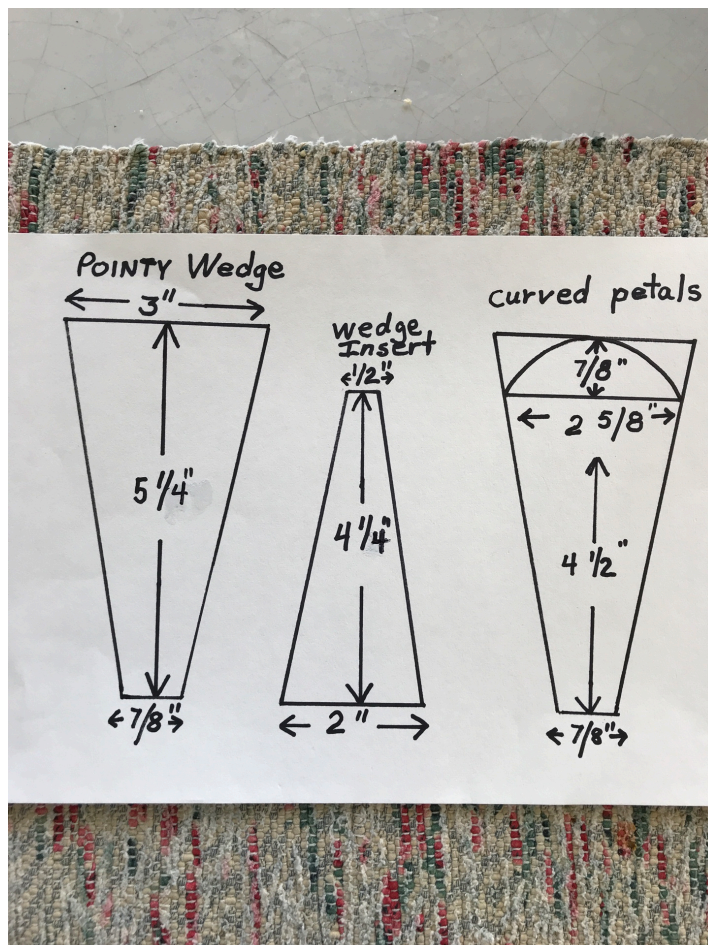 POINTY Wedge
3"
5 1/4"
7/8"
wedge
Insert
1/2"
4 1/4"
2"
curved petals
7/8"
2 5/8"
4 1/2"
7/8"